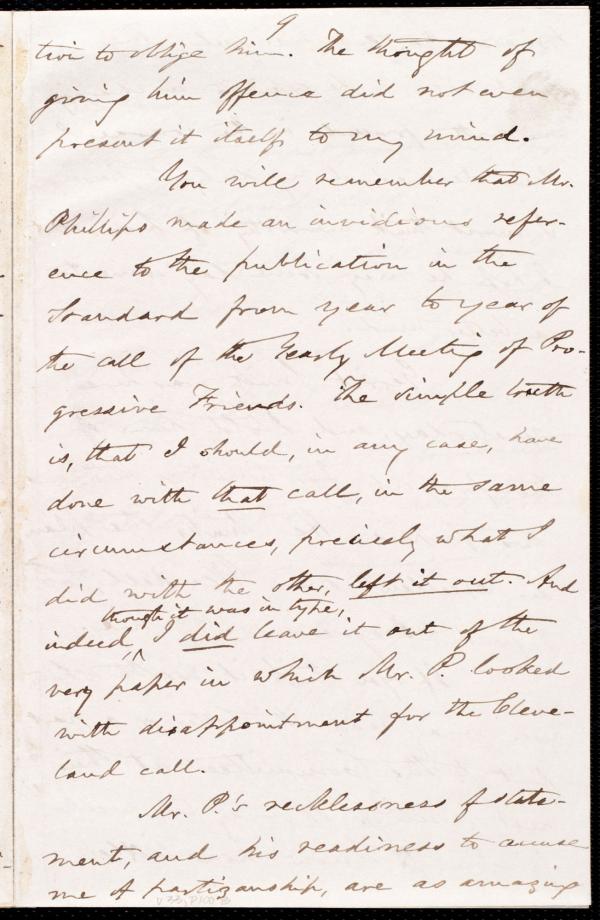 9
tion to oblige him. The thought of
giving him offence did not even
present it itself to my mind.
You will remember that Mr.
Phillips made an invidious refer-
ence to the publication in the
Standard from year to year of
the call of the Yearly Meeting of Pro-
gressive Friends. The simple truth
is, that I should, in any case, have
done with that call, in the same
circumstances, precisely what I
did with the other, left it out. And
though it was in type,
indeed, I did leave it out of the
very paper in which Mr. P. looked
with disappointment for the Cleve-
land call.
Mr. P.'s recklessness of state-
ment, and his readiness to accuse
me of partizanship, are as amazing